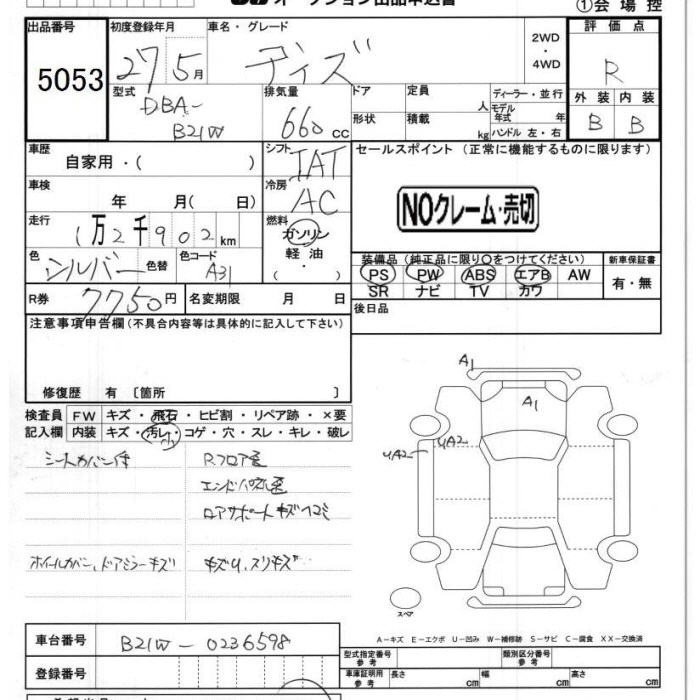 オークション出品申込書
①会場控
出品番号
5053
初度登録年月
27 5月
車名・グレード
デイズ
2WD
・
4WD
評価点
R
外装 内装
B B
型式
DBA-
B21W
排気量
660 cc
ドア
形状
定員
人
積載
kg
ディーラー・並行
モデル
年式 年
ハンドル 左・右
車歴
自家用・( )
シフト
IAT
セールスポイント (正常に機能するものに限ります)
車検
年 月( 日)
冷房
AC
NOクレーム・売切
走行
1万2千902km
燃料
ガソリン
軽油・
( )
色
シルバー
色替
色コード
A31
装備品 (純正品に限り○をつけてください)
PS PW ABS エアB AW
SR ナビ TV カワ
新車保証書
有・無
R券 7750円
名変期限 月 日
後日品
注意事項申告欄 (不具合内容等は具体的に記入して下さい)
修復歴 有 〔箇所 〕
検査員
記入欄
FW キズ・飛石・ヒビ割・リペア跡・×要
内装 キズ・汚レ・コゲ・穴・スレ・キレ・破レ
小
シートカバー付
Rフロア歪
エンドパネル歪
ロアサポートキズヘコミ
ホイールカバー、ドアミラーキズ
キズU、スリキズ
A1
A1
UA2
UA2
スペア
A-キズ E-エクボ U-凹み W-補修跡 S-サビ C-腐食 XX-交換済
車台番号
B21W-0236598
登録番号
型式指定番号
参考
類別区分番号
参考
車庫証明用
参考
長さ cm
幅 cm
高さ cm